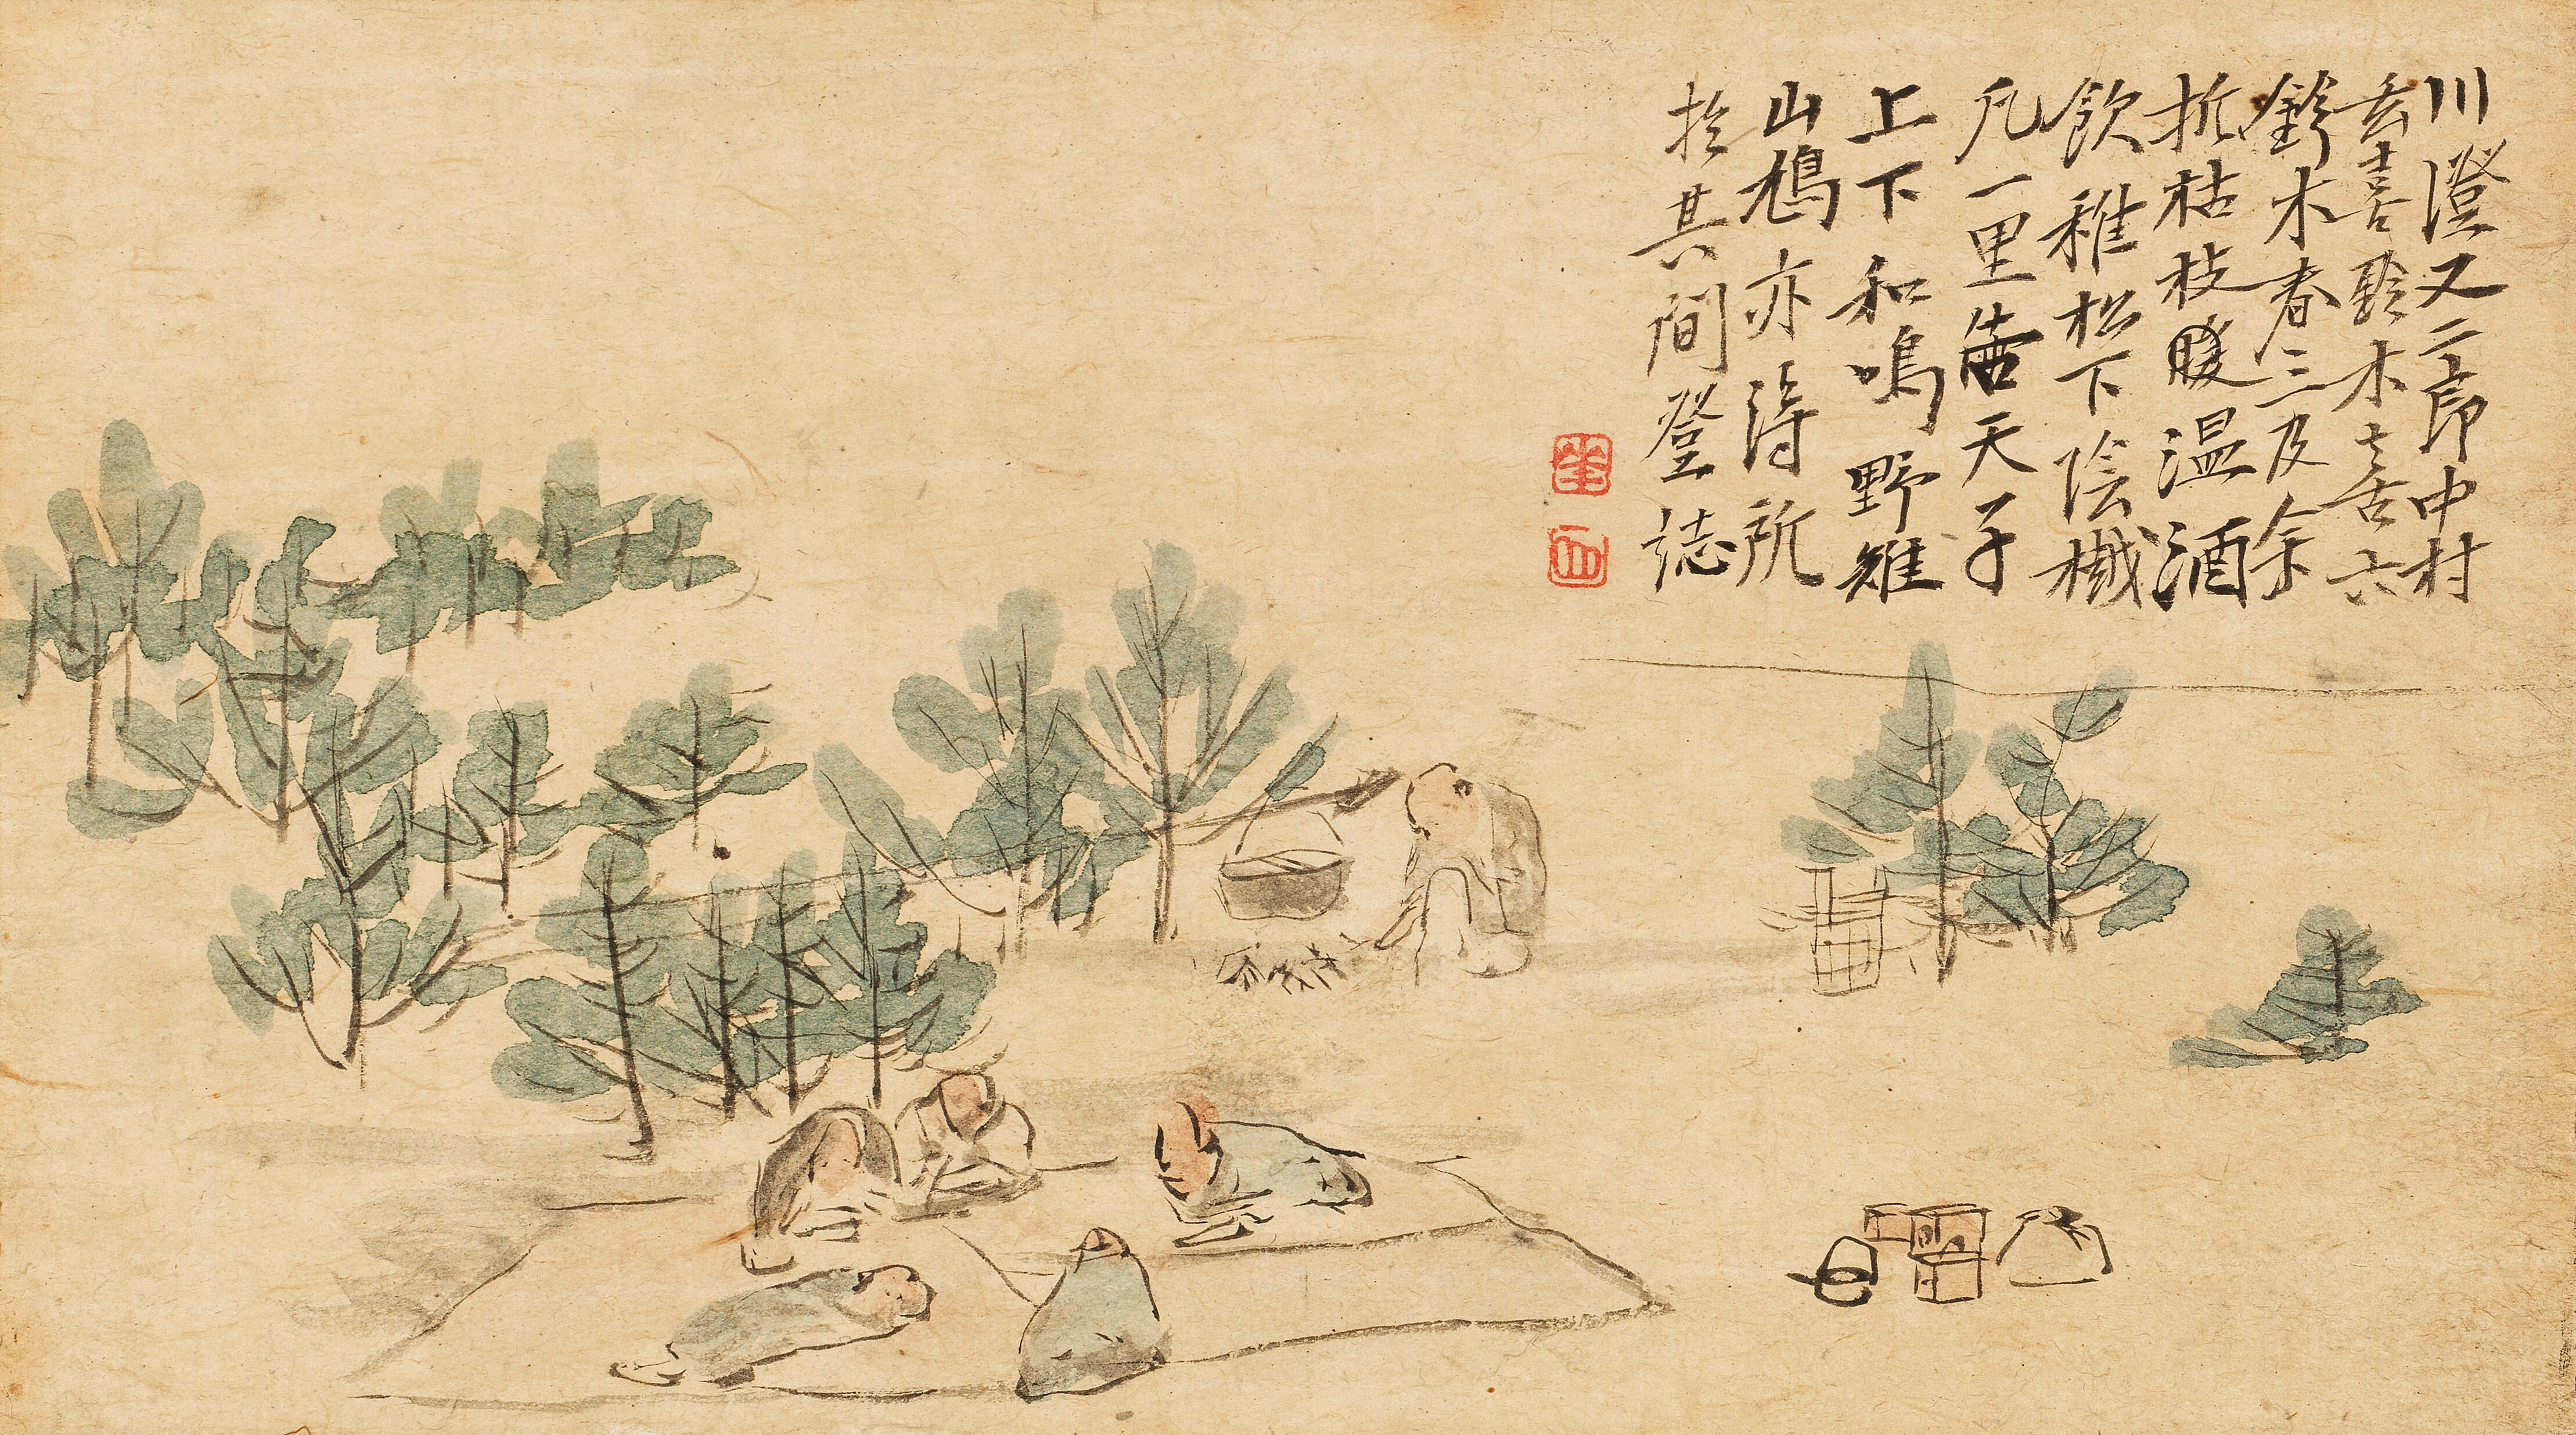 川澄又二郎中村
玄喜鈴木玄吉六
鈴木春三及余
折枯枝暖温酒
飲稚松下陰樾
凡一里告天子
上下和鳴野雉
山鵶亦得所
於其間登誌